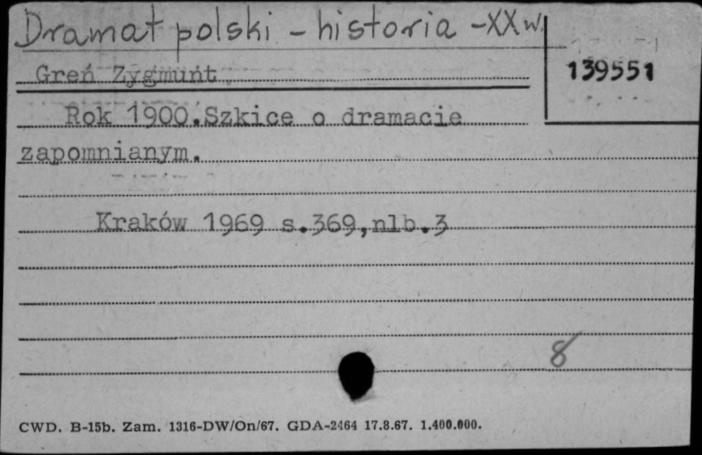 Dramat polski - historia - XX w.
139551
Greń Zygmunt
Rok 1900.Szkice o dramacie
zapomnianym.
Kraków 1969 s.369,nlb.3
8
CWD. B-15b. Zam. 1316-DW/On/67. GDA-2464 17.8.67. 1.400.000.